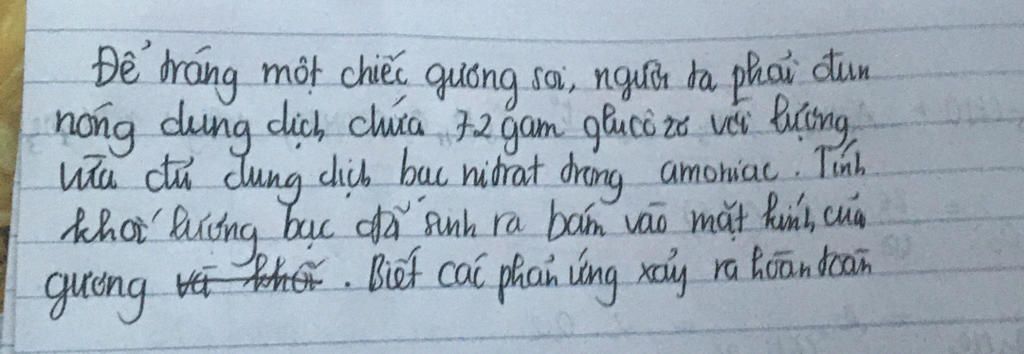 Để tráng một chiếc gương soi, người ta phải đun
nóng dung dịch chứa 72 gam glucôzơ với lượng
vừa đủ dung dịch bạc nitrat trong amoniac. Tính
khối lượng bạc đã sinh ra bám vào mặt kính của
gương và khối. Biết các phản ứng xảy ra hoàn toàn